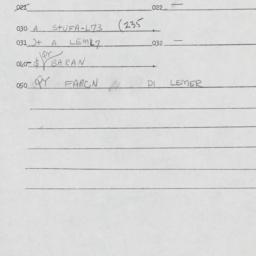 021 022 —
030 A STUFA-L73 (235
031 J+ A LEML7 032 —
040 BARAN
050 QY FARCN DI LEMER